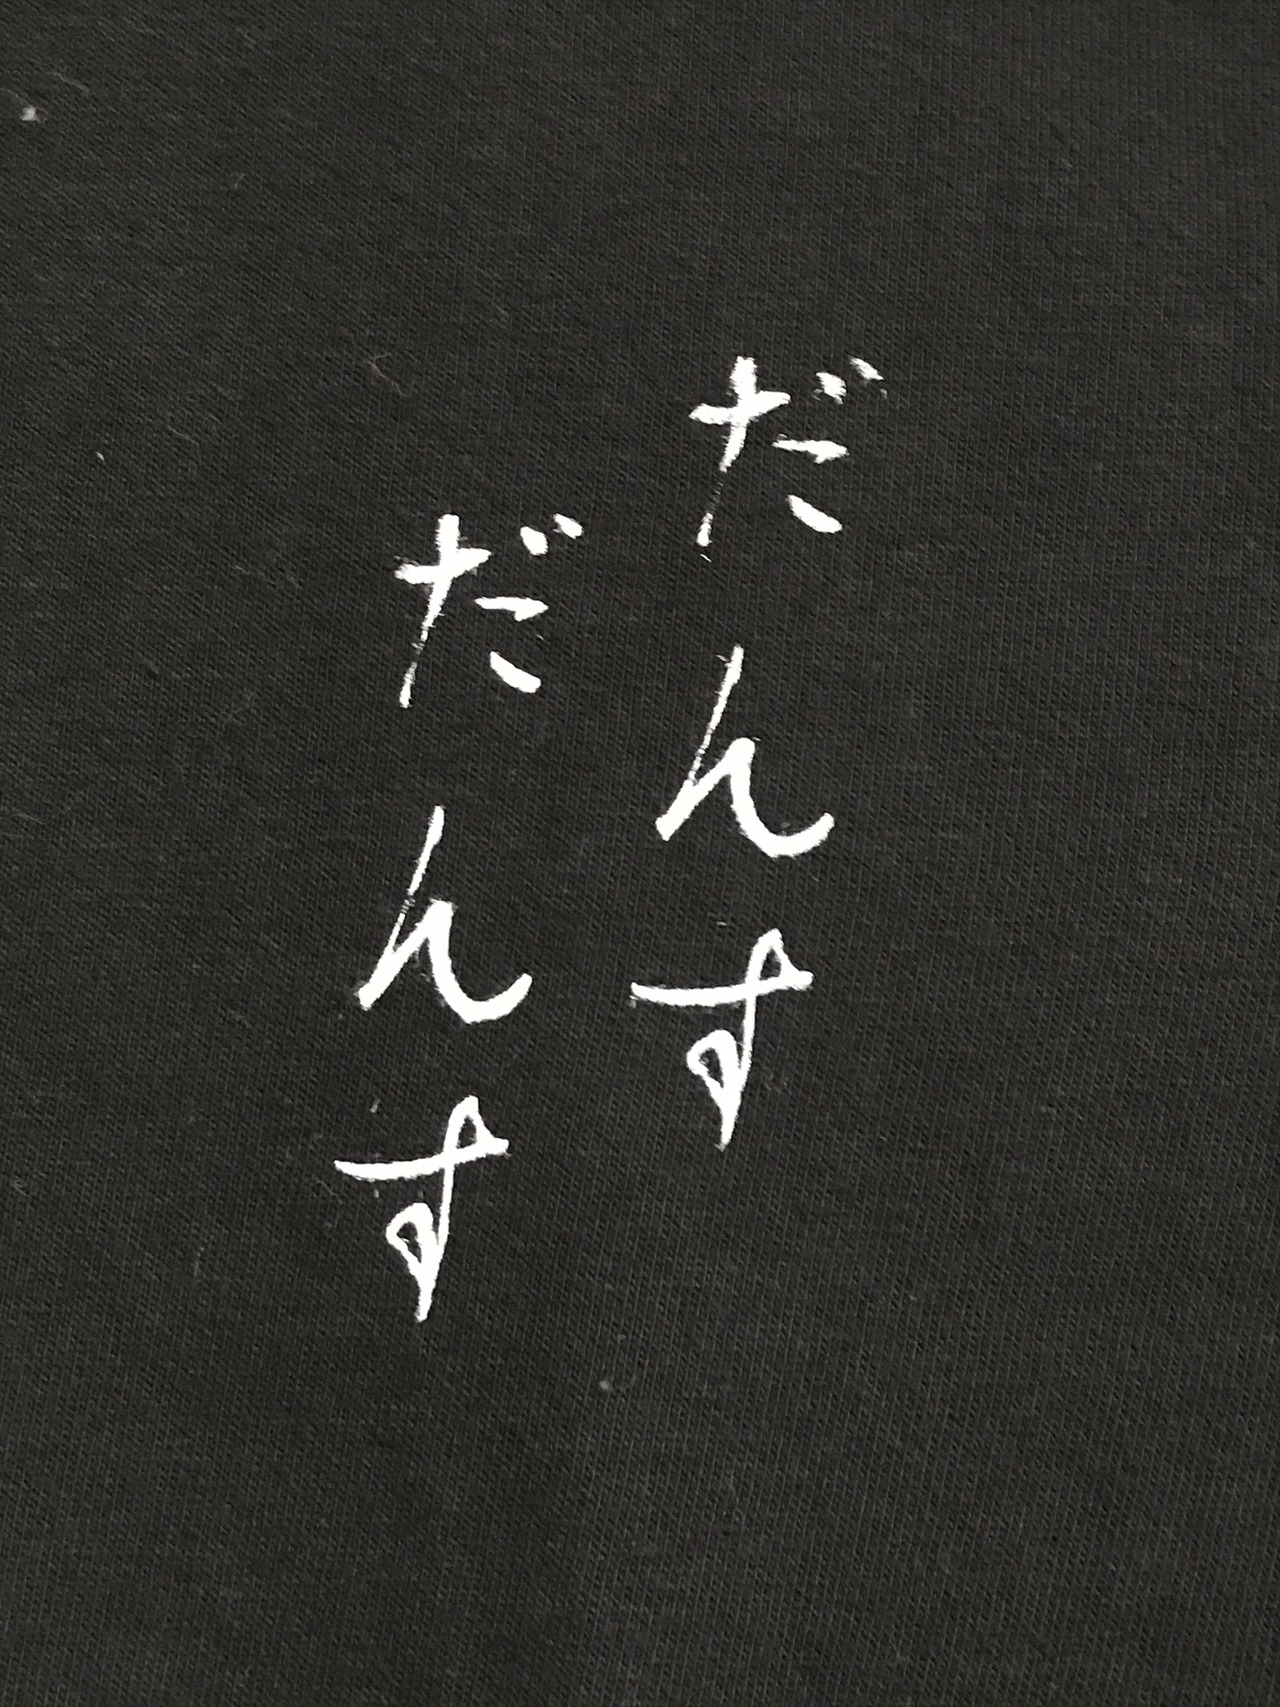 だんす
だんす